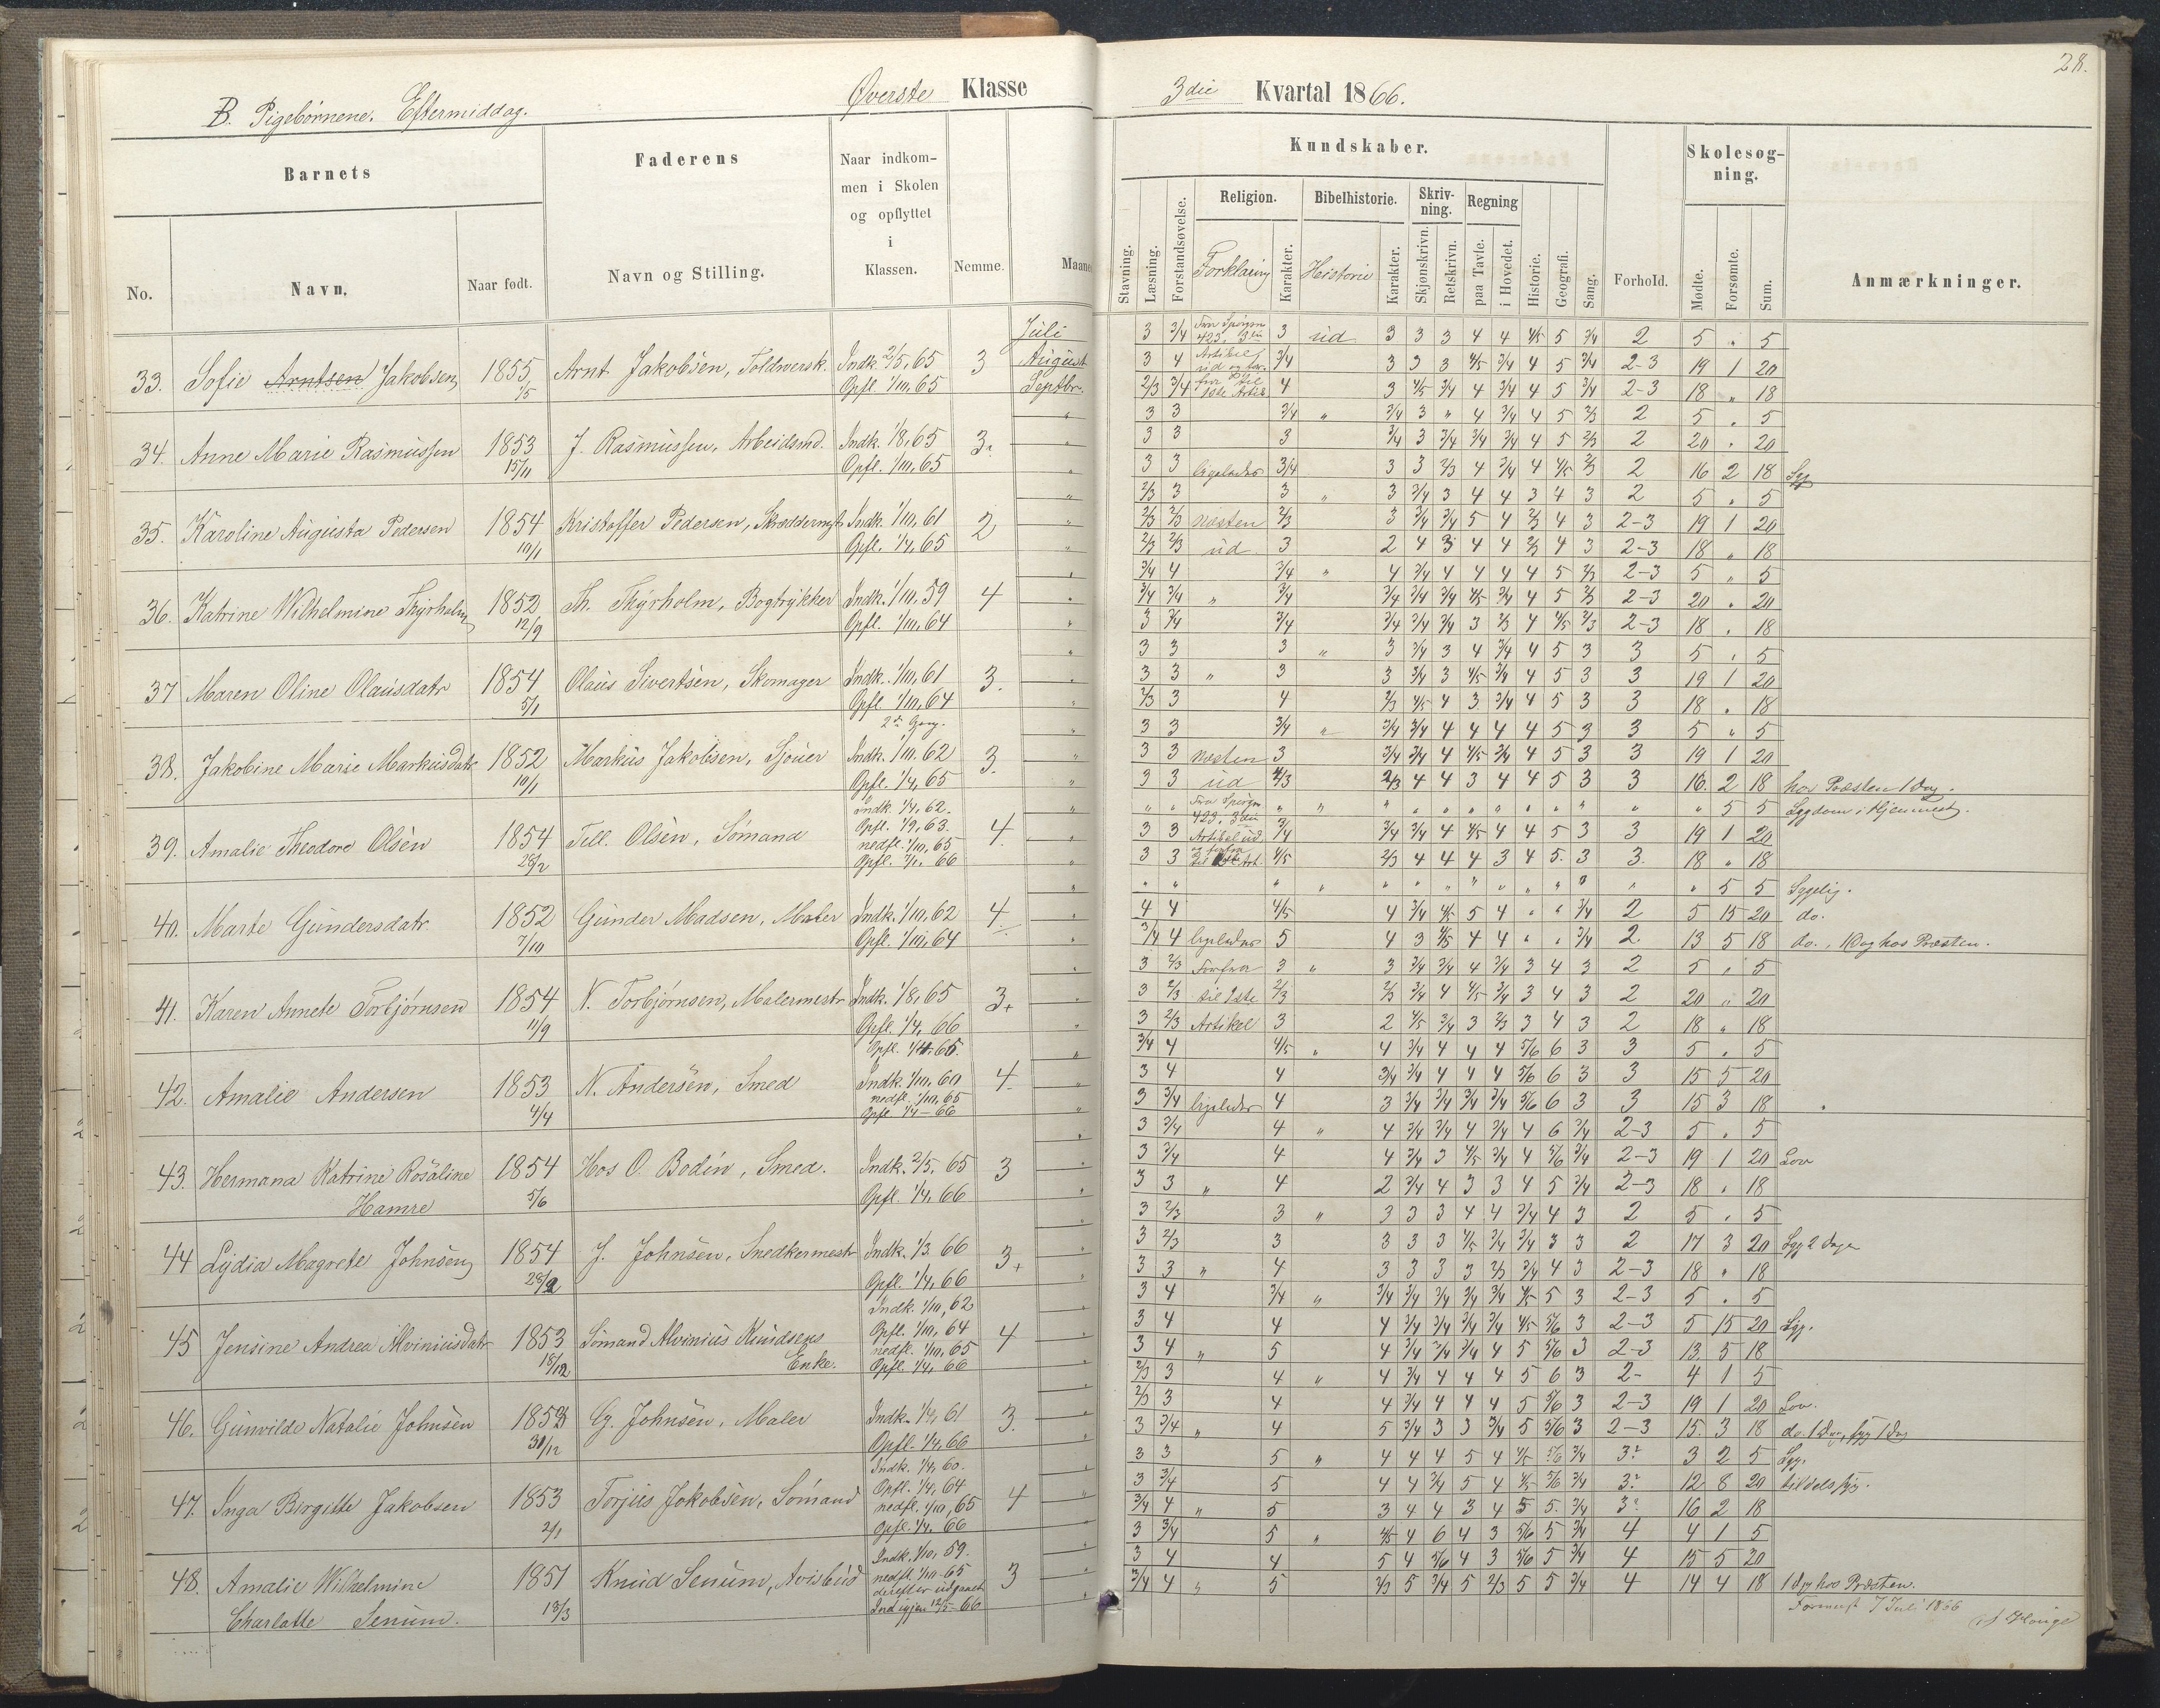 B. Pigebørnene. Eftermiddag. Øverste Klasse
3die Kvartal 1866.
28.
Barnets
Faderens
Naar indkommen i Skolen og opflyttet i Klassen.
Nemme.
Maaned
No.
Navn.
Naar født.
Navn og Stilling.
Kundskaber.
Skolesøgning.
Stavning.
Læsning.
Forstandsøvelse.
Religion.
Forklaring
Karakter.
Bibelhistorie.
Historie
Karakter.
Skrivning.
Skjønskrivn.
Retskrivn.
Regning
paa Tavle.
i Hovedet.
Historie.
Geografi.
Sang.
Forhold.
Mødte.
Forsømte.
Sum.
Anmærkninger.
33. Sofie Arntsen Jakobsen 1855 1/5 Arnt Jakobsen, Toldmersk. Indk. 2/5, 65 Opfl. 1/10, 65 3 Juli August Septbr.
3 3/4 3 ud 3 3 3 4 4 4/5 5 3/4 2 5 " 5
3 4 3/4 3 3 3 4/5 3/4 4 5 3/4 2-3 19 1 20
2/3 3/4 4 3 4/5 3/4 4 3/4 4 5 3/4 2-3 18 " 18
34. Anne Marie Rasmussen 1853 15/11 J. Rasmussen, Arbeidsmd. Indk. 1/8, 65 Opfl. 1/10, 65 3
3 3 3/4 " 3/4 3 " 4 3/4 4 5 2/3 2 5 " 5
3 3 3 3/4 3 3/4 3/4 3/4 4 5 2/3 2 20 " 20
3 3 ligeledes 3/4 3 3 2/3 4 3/4 4 4/5 2/3 2 16 2 18 Syg
35. Karoline Augusta Pedersen 1854 10/1 Kristoffer Pedersen, Skræddermst. Indk. 1/10, 61 Opfl. 1/4, 65 2
2/3 3 3 " 3 3/4 3 4 4 3 4 3 2 5 " 5
2/3 2/3 næsten 2/3 3 3/4 3/4 5 4 2/3 4 3 2-3 19 1 20
2/3 2/3 ud 3 2 4 3 4 4 2/3 4 3 2-3 18 " 18
36. Katrine Wilhelmine Thyrholm 1852 12/9 Th. Thyrholm, Bogtrykker Indk. 1/10, 59 Opfl. 1/10, 64 4
3/4 4 3/4 " 4 3/4 4 4 4 4 5 2/3 2-3 5 " 5
3/4 3/4 " 3/4 3/4 3/4 3/4 4/5 3/4 4 5 2/3 2-3 20 " 20
3 3/4 3/4 3/4 3/4 3/4 3 2/3 4 4/5 2/3 2-3 18 " 18
37 Maren Oline Olausdatr 1854 5/1 Olaus Sivertsen, Skomager Indk. 1/10, 61 Opfl. 1/10, 64 2den Gang. 3.
3 3 3 " 3 3/4 3 4 3/4 4 5 3 3 5 " 5
3 3 " 3 3 3/4 3 4/5 3/4 4 5 3 3 19 1 20
2/3 3 4 2/3 4/5 4 3 3/4 4 5 3 3 18 " 18
38. Jakobine Marie Markusdatr 1852 10/1 Markus Jakobsen, Sjouer Indk. 1/10, 62 Opfl. 1/4, 65 3.
3 3 3/4 " 3/4 3/4 4 4 4 4 5 3 3 5 " 5
3 3 næsten 3 3/4 3/4 4 4/5 3/4 4 5 3 3 19 1 20
3 3 ud 2/3 4 4 3 4 4 5 3 3 16. 2 18 hos Præsten 1 Dag.
39. Amalie Theodore Olsen 1854 28/2 Tell. Olsen, Sømand Indk. 1/4, 62. Opfl. 1/9, 63. nedfl. 1/10, 65 Opfl. 66 4.
" " " " " " " " " " " " " " 5 5 Sygdom i Hjemmet.
3 3 3/4 3/4 3/4 4 4/5 4 4 5 3 3 19 1 20
3 3 4/5 2/3 4 4 4 3 4 5. 3 3. 18 " 18
40. Marte Gundersdatr 1852 7/10 Gunder Madsen, Maler Indk. 1/10, 62 Opfl. 1/10, 64 4.
" " " " " " " " " " " " " " 5 5 Sygelig.
4 4 4/5 4 3/4 4/5 5 4 " " 3/4 2 5 15 20 do.
3/4 4 ligeledes 5 4 3 4/5 4 4 " " 3/4 2 13 5 18 do., 1 Dag hos Præsten.
41. Karen Annete Torbjørnsen 1854 11/9 N. Torbjørnsen, Malermestr Indk. 1/8, 65 Opfl. 1/4, 66 3+
3 2/3 Forfra 3 " 3 3/4 3/4 4 3/4 3 4 3 2 5 " 5
3 2/3 til 1ste 2/3 2/3 3/4 4 4/5 3/4 3 4 3 2 20 " 20
3 2/3 Artikel 3 2 4/5 3/4 3 2/3 3 4 3 2 18 " 18
42. Amalie Andersen 1853 4/4 N. Andersen, Smed Indk. 1/10, 60 nedfl. 1/10, 65 Opfl. 1/4 - 66 4.
3/4 4 4/5 " 4 3/4 4 4 4 5/6 6 3 3 5 " 5
3 4 4 3/4 3/4 4 4 4 5/6 6 3 3 15 5 20
3 3/4 ligeledes 4 3 3/4 3/4 3/4 3/4 5/6 6 3 3 15 3 18
43. Hermana Katrine Rosaline Hamre 1854 5/6 Hos O. Bodin, Smed. Indk. 2/5, 65 Opfl. 1/4, 66 3
3 3/4 4 " 4 3/4 3/4 4 3/4 4 6 3/4 2-3 5 " 5
3 3/4 4 4 3/4 3 4/5 3/4 4 5/6 3/4 2-3 19 1 20 Lov
3 3 " 4 2 3/4 4 3 3 4 5 3/4 2-3 18 " 18
44 Lydia Magrete Johnsen 1854 J. Johnsen, Snedkermestr Indk. 1/3. 66 Opfl. 1/4, 66 3+
3 2/3 3 " 3 3 3 4 4 3/4 4 3 2 5 " 5
3 2/3 3 3 3 3 4/5 3/4 3/4 3 3 2 17 3 20 Syg 2 Dage
3 3 " 4 3 3 3 3 2/3 3/4 4 3 2-3 18 " 18
45 Jensine Andrea Alviniusdatr 1853 18/12 Sømand Alvinius Knudsens Enke. Indk. 1/10, 62 Opfl. 1/10, 64 nedfl. 1/10, 65 Opfl. 1/4, 66 4
3 4 3/4 " 3/4 3/4 3/4 3/4 3/4 4/5 5 3 2-3 5 " 5
3 4 4 4 3/4 3/4 3/4 3/4 4/5 5/6 3 2-3 5 15 20 Syg.
3 4 " 5 4 3/4 3/4 3/4 4 5 5/6 3 2-3 13. 5 18
46. Gunvilde Natalie Johnsen G. Johnsen, Maler Opfl. 1/4, 66 3.
2/3 3 4 " 4 3/4 4 4 4 5 6 3 2- 4 1 5
2/3 3 4 4 3/4 4 4 4 5 5/6 3 2-3 19 1 20 Lov.
3 3/4 " 4 5 3/4 3 3 3/4 5 5/6 3 2-3 15. 3 18 do. 1 Dag, syg 1 Dag
47. Inga Birgitte Jakobsen 1853 2/1 Torjus Jokobsen, Sømand Indk. 1/4, 60. Opfl. 1/4, 64 nedfl. 1/10, 65 Opfl. 1/4, 66 4
3 3 5 " 4 4 4 5 4 4/5 5/6 3/4 3? 3 2 5 Syg.
3 3/4 5 4 4 3/4 5 4 4/5 5/6 3/4 3? 12 8 20 tildels syg.
3/4 4 " 5 3 4 4 3 4 5 5. 3/4 3? 16 2 18
48. Amalie Wilhelmine Charlotte Senum. 1851 13/3 Knud Senum, Avisbud Indk. 1/10, 59. nedfl 1/10-65 derefter udgaaet Ind igjen 12/5-66 3
3 3/4 5 " 4/5 4 6 4 3 5/6 5 3/4 4 4 1 5
3 4 4 5 4 5/6 4 3 5/6 5 3/4 4 15 5 20
3/4 4 " 5 2/3 5 3/4 5 2/3 5 5 3/4 4 14 4 18 1 Dag hos Præsten.
7 Juli 1866